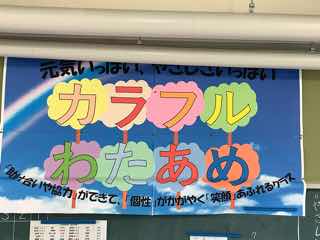 元気いっぱい、やさしさいっぱい
カラフル
わたあめ
「助け合いや協力」ができて、「個性」がかがやく「笑顔」あふれるクラス